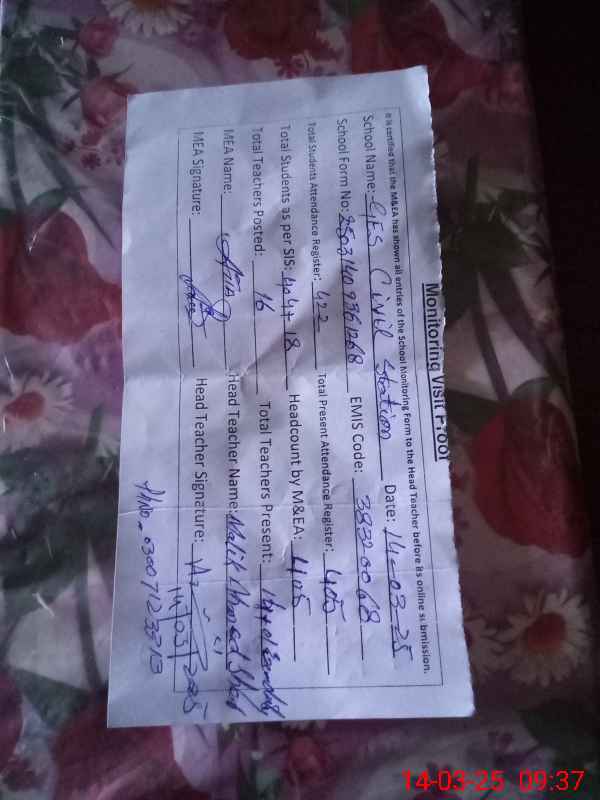 Monitoring Visit Proof
It is certified that the M&EA has shown all entries of the School Monitoring Form to the Head Teacher before its online submission.
School Name: GES Civil Station Date: 14-03-25
School Form No: 25031409361268 EMIS Code: 38320068
Total Students Attendance Register: 422 Total Present Attendance Register: 405
Total Students as per SIS: 404+18 Headcount by M&EA: 405
Total Teachers Posted: 16 Total Teachers Present:
MEA Name: Head Teacher Name: Malik
MEA Signature: Head Teacher Signature:
14/03/2025
14-03-25 09:37